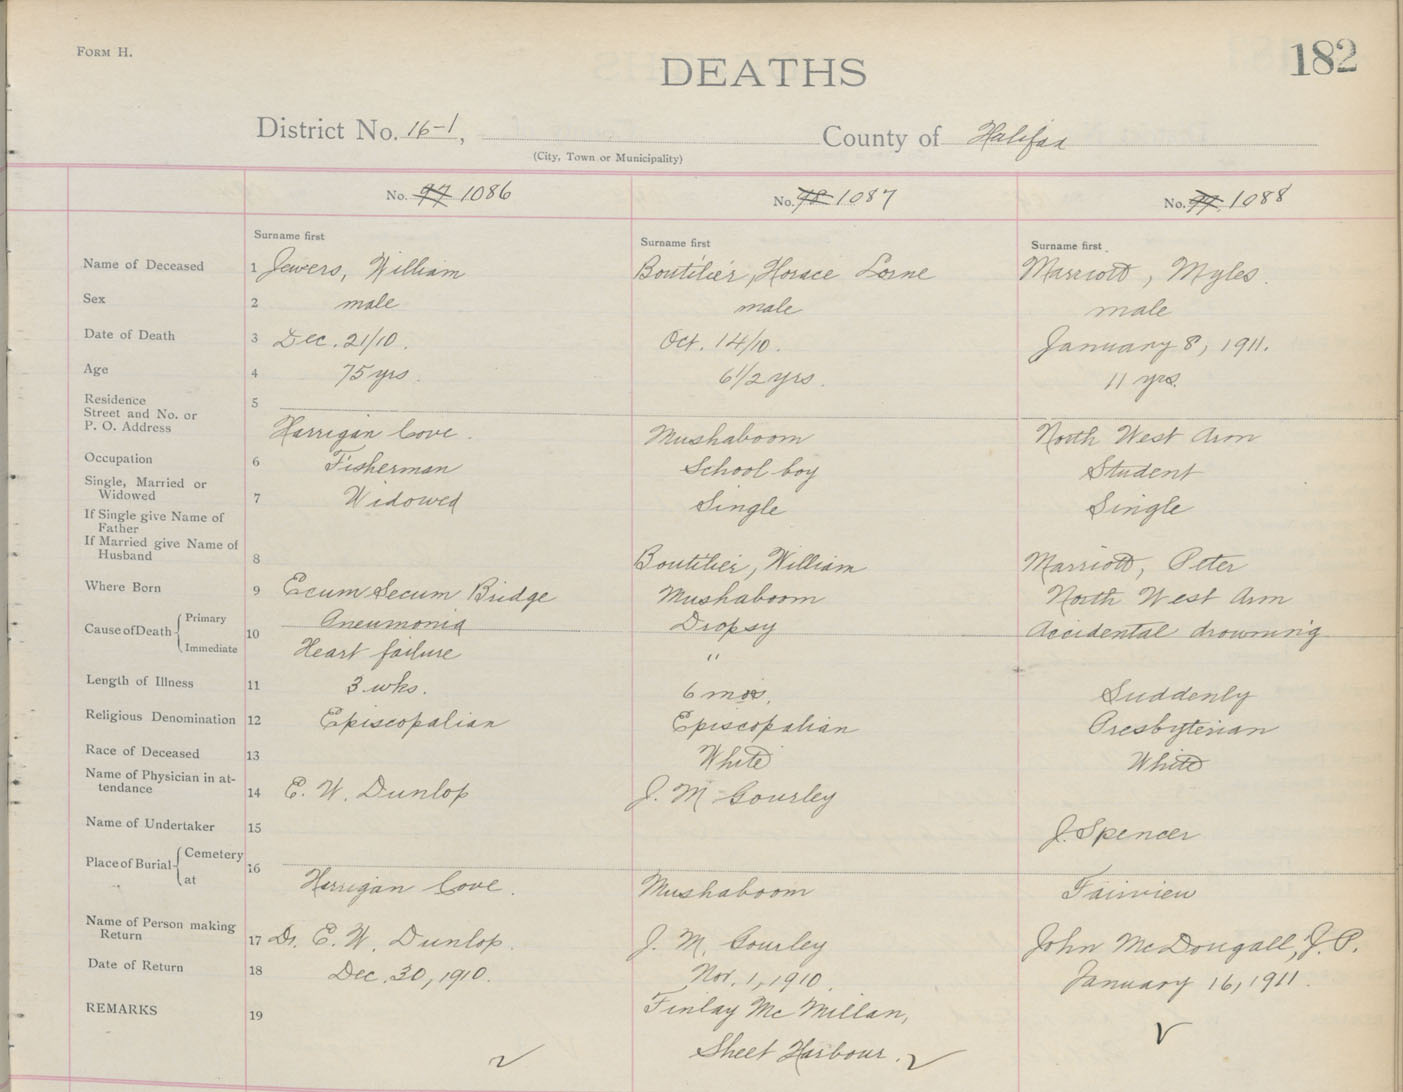 FORM H.
182
DEATHS
District No. 16-1, County of Halifax
(City, Town or Municipality)
No. 97 1086 No. 98 1087 No. 99 1088
Surname first Surname first Surname first
Name of Deceased 1 Jewers, William Boutilier, Horace Lorne Marriott, Myles.
Sex 2 male male male
Date of Death 3 Dec. 21/10. Oct. 14/10. January 8, 1911.
Age 4 75 yrs. 6 1/2 yrs. 11 yrs.
Residence 5
Street and No. or
P. O. Address Harrigan Cove. Mushaboom North West Arm
Occupation 6 Fisherman School boy Student
Single, Married or
Widowed 7 Widowed Single Single
If Single give Name of
Father
If Married give Name of
Husband 8 Boutilier, William Marriott, Peter
Where Born 9 Ecum Secum Bridge Mushaboom North West Arm
Cause of Death Primary 10 Pneumonia Dropsy Accidental drowning
Immediate Heart failure "
Length of Illness 11 3 wks. 6 mos. Suddenly
Religious Denomination 12 Episcopalian Episcopalian Presbyterian
Race of Deceased 13 White White
Name of Physician in at-
tendance 14 E. W. Dunlop J. M Gourley
Name of Undertaker 15 J. Spencer
Place of Burial Cemetery 16
at Harrigan Cove. Mushaboom Fairview
Name of Person making
Return 17 Dr. E. W. Dunlop. J. M. Gourley John McDougall, J. P.
Date of Return 18 Dec. 30, 1910. Nov. 1, 1910. January 16, 1911.
REMARKS 19 Finlay McMillan,
Sheet Harbour.